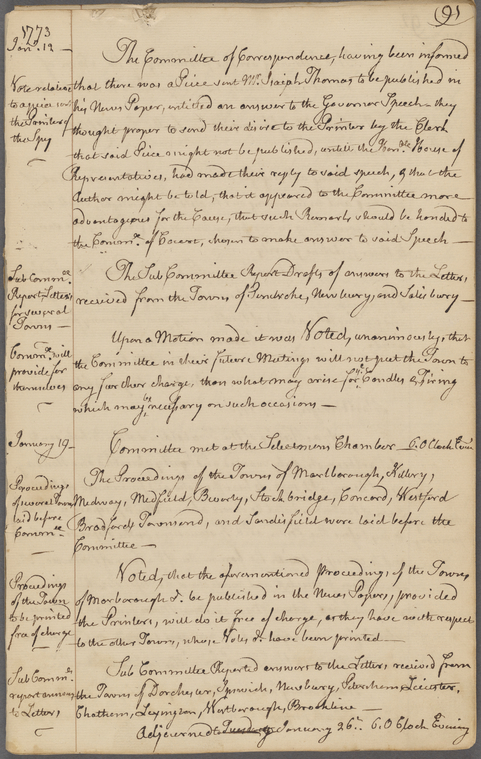 (9)
1773
Jan.y 12
The Committee of Correspondence, having been informed
Note relating
to a piece sent
the Printer of
the Spy
that there was a Piece sent Mr. Isaiah Thomas to be published in
his News Paper, entitled an answer to the Governor Speech - they
thought proper to send their desire to the Printer by the Clerk
that said Piece might not be published, untill the Hon.ble House of
Representatives, had made their reply to said speech, & that the
Author might be told, that it appeared to the Committee more
advantageous for the Cause, that such Remarks should be handed to
the Comm.ee of Court, chosen to make answer to said Speech —
Sub Comm.ee
Report Letters
for several
Towns —
The Sub Committee Report Drafts of answers to the Letters
received from the Towns of Pembroke, Newbury, and Salisbury —
Comm.ee will
provide for
themselves
Upon a Motion made it was Voted, unanimously, that
the Committee in their future Meetings will not put the Town to
any further charge, than what may arise for Candles & Firing
which may be necessary on such occasions —
January 19 —
Committee met at the Selectmens Chamber 6. O Clock Even.g
Proceedings
of several Towns
laid before
Comm.ee
The Proceedings of the Towns of Marlborough, Kittery,
Medway, Medfield, Beverly, Stockbridge, Concord, Westford
Bradford, Townsend, and Sandisfield were laid before the
Committee —
Proceedings
of the Town
to be printed
free of charge
Voted, that the aforementioned Proceedings of the Town,
of Marlborough &c. be published in the News Papers, provided
the Printers, will do it free of charge, as they have with respect
to the other Towns, whose Votes &c have been printed —
Sub Comm.ee
report answers
to Letters
Sub Committee Reported answers to the Letters received from
the Towns of Dorchester, Ipswich, Newbury, Petersham, Leicester,
Chatham, Lexington, Westborough, Brookline —
Adjourned to Tuesday January 26.th 6. O Clock Evening